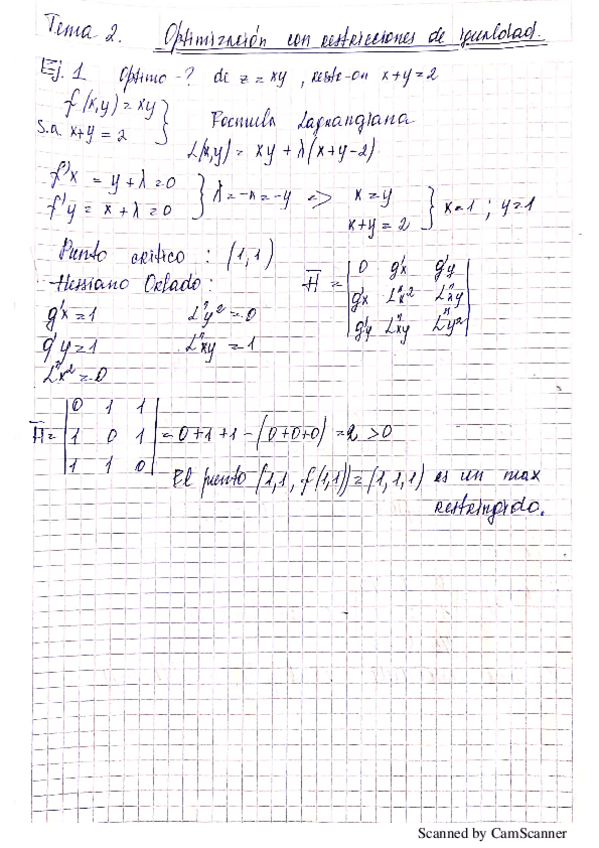 Tema 2. Optimización con restricciones de igualdad.
Ej. 1 Optimo -? de z = xy, resto-on x+y=2
f(x,y) = xy
s.a x+y = 2
Formula Lagrangiana
L(x,y) = xy + λ(x+y-2)
f'x = y+λ=0
f'y = x+λ=0
λ=-x=-y => x=y
x+y=2
x=1 ; y=1
Punto critico : (1,1)
Hessiano Orlado:
H̅ = | 0 g'x g'y |
| g'x L''x² L''xy |
| g'y L''xy L''y² |
g'x = 1 L''y² = 0
g'y = 1 L''xy = 1
L''x² = 0
H̅ = | 0 1 1 |
| 1 0 1 | = 0+1+1-(0+0+0) = 2 > 0
| 1 1 0 |
El punto (1,1, f(1,1))=(1,1,1) es un max
restringido.
Scanned by CamScanner